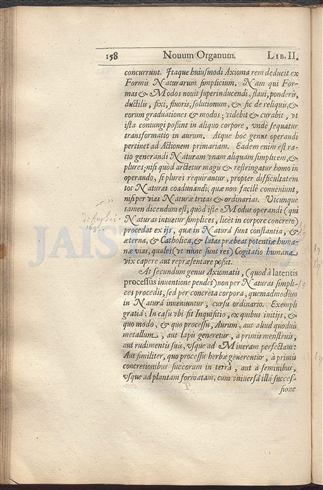 158 Nouum Organum. LIB. II.
concurrunt. Itaque huiusmodi Axioma rem deducit ex
Formis Naturarum simplicium. Nam qui For-
mas & Modos nouit superinducendi, flaui, ponderis,
ductilis, fixi, fluoris, solutionum, & sic de reliquis, &
eorum graduationes & modos; videbit & curabit, vt
ista coniungi possint in aliquo corpore, vnde sequatur
transformatio in aurum. Atque hoc genus operandi
pertinet ad Actionem primariam. Eadem enim est ra-
tio generandi Naturam vnam aliquam simplicem, &
plures; nisi quod arctetur magis & restringatur homo in
operando, si plures requirantur, propter difficultatem
tot Naturas coadunandi; quæ non facilè conueniunt,
nisi per vias Naturæ tritas & ordinarias. Vtcunque
tamen dicendum est, quod iste Modus operandi (qui
Naturas intuetur simplices, licèt in corpore concreto)
procedat ex ijs, quæ in Naturâ sunt constantia, &
æterna, & Catholica, & latas præbeat potentiæ huma-
næ vias, quales (vt nunc sunt res) Cogitatio humana
vix capere aut repræsentare possit.
At secundum genus Axiomatis, (quod à latentis
processûs inuentione pendet) non per Naturas simpli-
ces procedit, sed per concreta corpora, quemadmodum
in Naturâ inueniuntur, cursu ordinario. Exempli
gratiâ: In casu vbi fit Inquisitio, ex quibus initijs, &
quo modo, & quo processu, Aurum, aut aliud quoduis
metallum, aut lapis generetur, à primis menstruis,
aut rudimentis suis, vsque ad Mineram perfectam:
Aut similiter, quo processu herbæ generentur, à primis
concretionibus succorum in terrâ, aut à seminibus,
vsque ad plantam formatam, cum vniuersâ illâ succes-
sione
JAIST